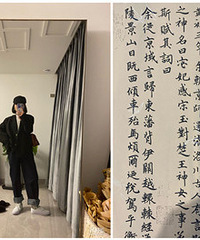 三年余朝京師還濟洛川古人
之神名曰宓妃感宋玉對楚王神女之事
斯賦其詞曰
余從京域言歸東藩背伊闕越轘轅經
陵景山日既西傾車殆馬煩爾迺稅駕乎蘅